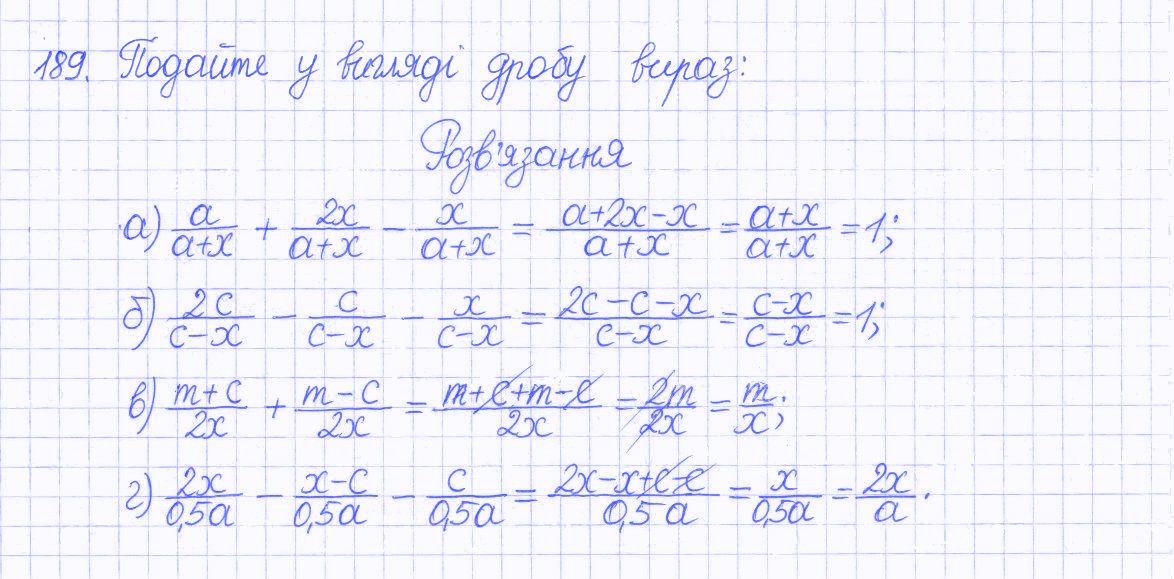 189. Подайте у вигляді дробу вираз:
Розв'язання
а) a/(a+x) + 2x/(a+x) - x/(a+x) = (a+2x-x)/(a+x) = (a+x)/(a+x) = 1;
б) 2c/(c-x) - c/(c-x) - x/(c-x) = (2c-c-x)/(c-x) = (c-x)/(c-x) = 1;
в) (m+c)/2x + (m-c)/2x = (m+c+m-c)/2x = 2m/2x = m/x;
г) 2x/0,5a - (x-c)/0,5a - c/0,5a = (2x-x+c-c)/0,5a = x/0,5a = 2x/a.